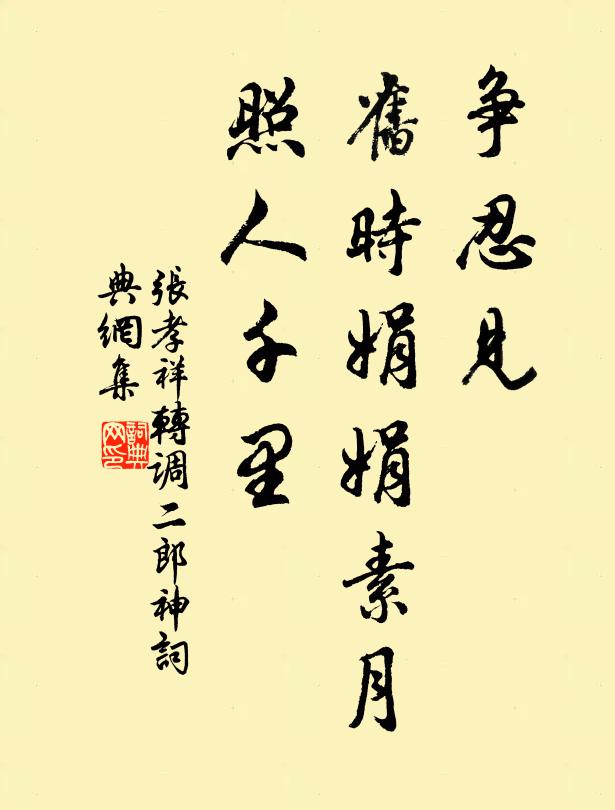 争忍見
舊時娟娟素月
照人千里
張孝祥轉调二郎神詞
典網集
詞典網印